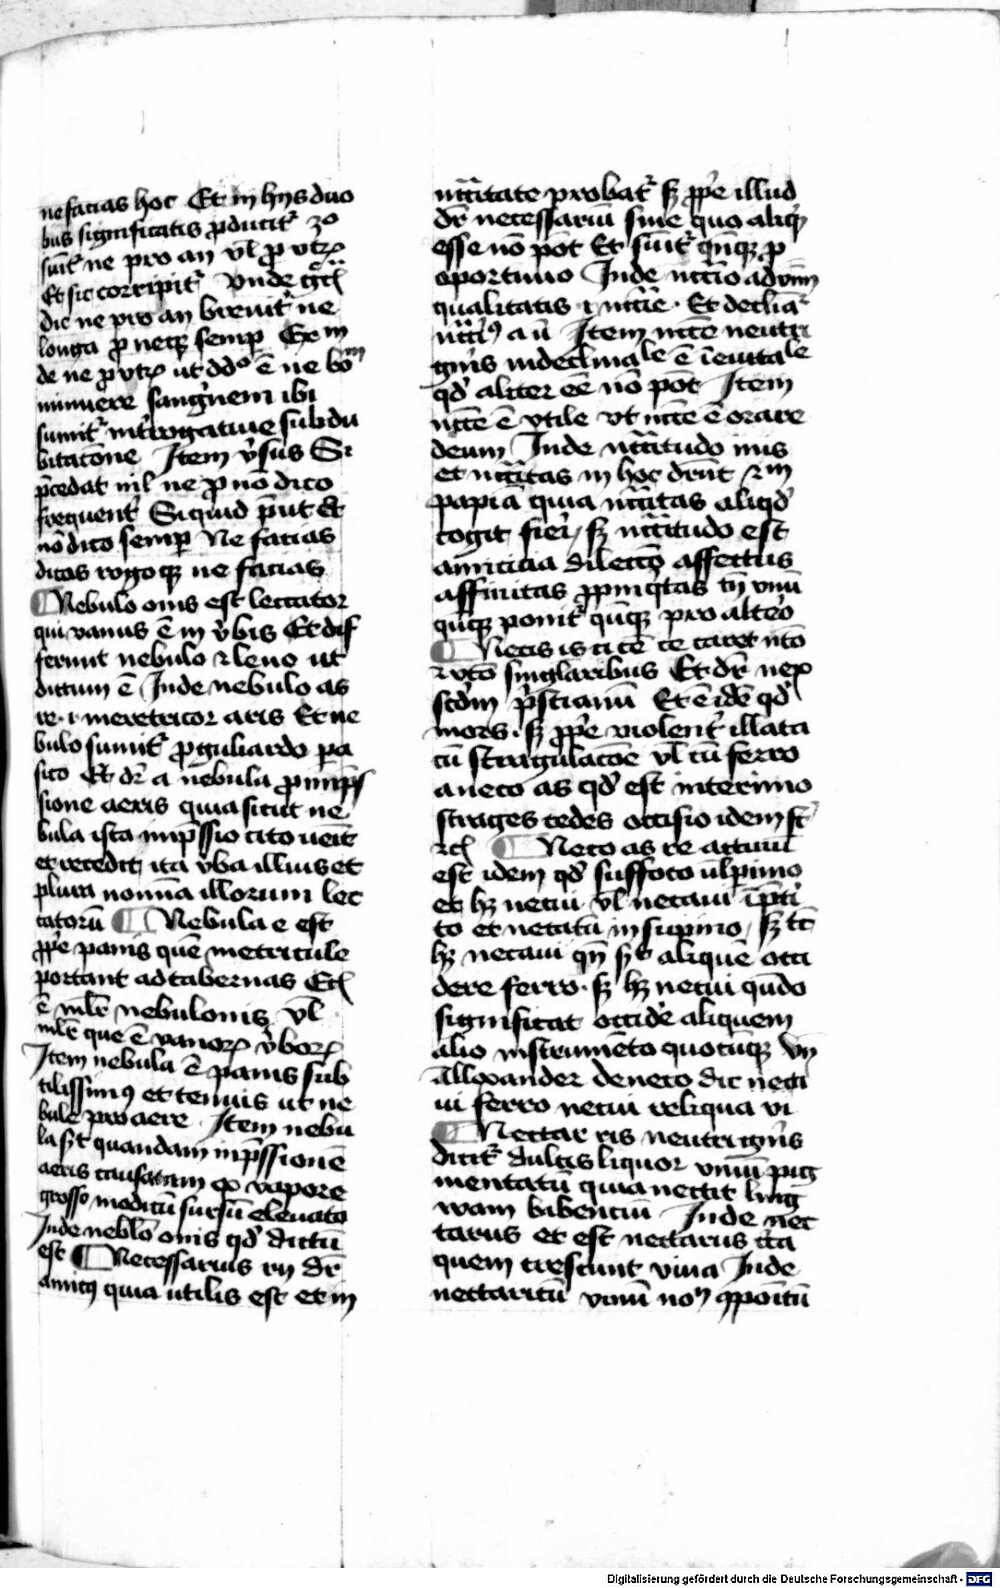 ne facias hoc Et in hijs duo
bus significatis ꝓducit᷑ 3o
sumit᷑ ne pro an vl̄ ꝓ vtrꝝ
Et sic corripit᷑ vnde
dic ne pro an breuit᷑ ne
longa ꝓ neqꝫ semꝑ
de ne ꝓ vtrꝝ ut ddo ē ne bo
minuere sangͥnem ibi
sumit᷑ int̾rogatiue sub du
bitacōne Item v̾sus Si
p̄cedat nil ne ꝓ nō dico
frequent̾ Siquid p̄ut Et
nō dico semꝑ Ne facias
dicas rogoqꝫ ne facias
Nebulo onis est leccator
qui vanus ē in v̾bis Et dif
ferunt nebulo ⁊ leno ut
dictum ē Inde nebulo as
re .i. meretricor aris Et ne
bulo sumit᷑ ꝓ guliardo pa
sito Et dr̄ a nebula ꝓ inp̄s
sione aeris quia sicut ne
bula ista inp̄ssio cito uenit
et recedit ita v̾ba illius et
plura nomīa illorum lec
catorū Nebula e est
ꝓpͥe panis quē metricule
portant ad tabernas Et
ē mlr̄ nebulonis vl̄
mlr̄ que ē vanorꝝ v̾borꝝ
Item nebula ē panis sub
tilissimꝰ et tenuis ut ne
bule pro aere Item nebu
la s̄t quandam inp̄ssionē
aeris causatam ex vapore
grosso modicū sursū eleuato
Inde neblo onis qd̾ dictū
est Necessarius rij dr̄
amicꝰ quia utilis est et in
nccitate probat᷑ sꝫ ꝓpͥe illud
dr̄ necessariū sine quo aliqͥd
esse nō pōt Et sumit᷑ qn̄qꝫ ꝓ
oportuno Inde nccio aduīm
qualitatis .i. nccīe . Et declīat᷑
nccͥꝰ a ū Item nccē neutri
gnīs indeclinale ē īeuitale
qd̾ aliter eē nō pōt Item
nccē ē vtile vt nccē ē orare
deum Inde nccitudo inis
et nccitas in hoc drn̄t
papiā quia nccitas aliqͥd
cogit fieri sꝫ nccitudo est
amicicia dilectō affectus
affinitas ꝓpinqͥtas tn̄ vnū
qn̄qꝫ ponit᷑ qn̄qꝫ pro alteō
Necis is ci cē ce caret ntō
⁊ vctō singlaribus Et dr̄ nex
scd̄m p̄scianū Et ē idē qd̾
mors . sꝫ ꝓpͥe violent̾ illata
cū strangulacōe vl̄ cū ferro
a neco as qd̾ est interimo
strages cedes occisio idem s̄t
Neco as re actiuū
est idem qd̾ suffoco ul̄ primo
et hꝫ necui vl̄ necaui ī p̄ti
to et necatū in supino sꝫ tc̄
hꝫ necaui qn̄ s̄t aliquē occi
dere ferro . sꝫ hꝫ necui qn̄do
significat occide̾ aliquem
alio instrumēto quocūqꝫ vn̄
allexander de neco dic neca
ui ferro necui reliqua vi
Nectar ris neutri gnīs
dicit᷑ dulcis liquor vinū pig
mentatū quia nectit ling
wam bibenciū Inde nec
tarus et est nectarus tr̄a
quem crescunt vina Inde
nectaritū vinū
Digitalisierung gefördert durch die Deutsche Forschungsgemeinschaft - DFG